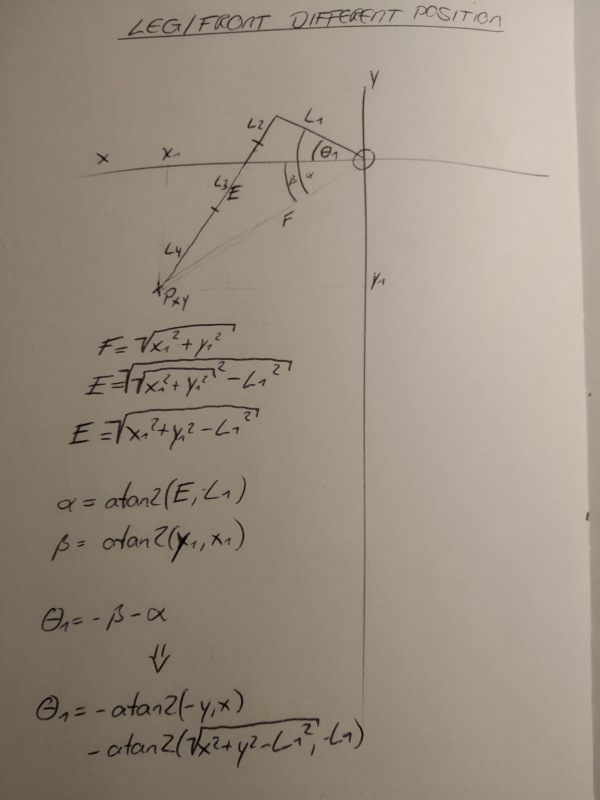 LEG/FRONT DIFFERENT POSITION
y
L2 L1
x x1 θ1
L3 E β α
F
L4
y1
Pxy
F = √x1² + y1²
E = √√x1² + y1²² - L1²
E = √x1² + y1² - L1²
α = atan2(E, L1)
β = atan2(y1, x1)
θ1 = -β - α
⇓
θ1 = -atan2(-y, x)
-atan2(√x² + y² - L1², -L1)